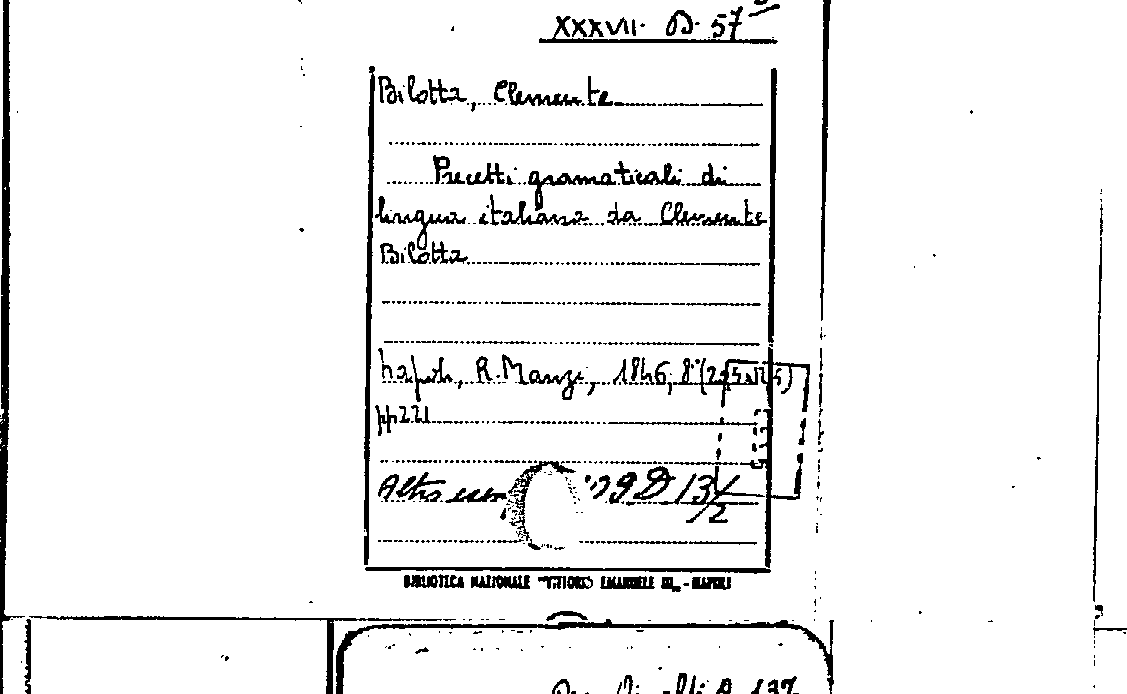 XXXVII. D. 57
Bilotta, Clemente
Precetti gramaticali di
lingua italiana da Clemente
Bilotta
Napoli, R. Manzi, 1846, 8° (
pp 221
Altro esem
D 13
BIBLIOTECA NAZIONALE "VITTORIO EMANUELE III„ - NAPOLI